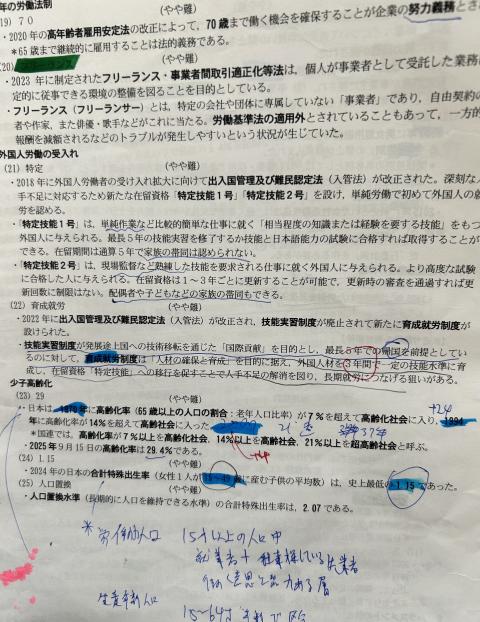 年の労働法制
19) 70 (やや難)
・2020年の高年齢者雇用安定法の改正によって，70歳まで働く機会を確保することが企業の努力義務とさ
＊65歳まで継続的に雇用することは法的義務である。
(20) フリーランス (やや難)
・2023年に制定されたフリーランス・事業者間取引適正化等法は，個人が事業者として受託した業務
定的に従事できる環境の整備を図ることを目的としている。
・フリーランス（フリーランサー）とは，特定の会社や団体に専属していない「事業者」であり，自由契約の
者や作家，また俳優・歌手などがこれに当たる。労働基準法の適用外とされていることもあって，一方的
報酬を減額されるなどのトラブルが発生しやすいという状況が生じていた。
外国人労働の受入れ
(21) 特定 (やや難)
・2018年に外国人労働者の受け入れ拡大に向けて出入国管理及び難民認定法（入管法）が改正された。深刻な人
手不足に対応するため新たな在留資格「特定技能1号」「特定技能2号」を設け，単純労働で初めて外国人の就
労を認める。
・「特定技能1号」は，単純作業など比較的簡単な仕事に就く「相当程度の知識または経験を要する技能」をもつ
外国人に与えられる。最長5年の技能実習を修了するか技能と日本語能力の試験に合格すれば取得することが
できる。在留期間は通算5年で家族の帯同は認められない。
・「特定技能2号」は，現場監督など熟練した技能を要求される仕事に就く外国人に与えられる。より高度な試験
に合格した人に与えられる。在留資格は1～3年ごとに更新することが可能で，更新時の審査を通過すれば更
新回数に制限はない。配偶者や子どもなどの家族の帯同もできる。
(22) 育成就労 (やや難)
・2022年に出入国管理及び難民認定法（入管法）が改正され，技能実習制度が廃止されて新たに育成就労制度が
設けられた。
・技能実習制度が発展途上国への技術移転を通じた「国際貢献」を目的とし，最長5年での帰国を前提としてい
るのに対して，育成就労制度は「人材の確保と育成」を目的に据え，外国人材を3年間で一定の技能水準に育
成し，在留資格「特定技能」への移行を促すことで人手不足の解消を図り，長期就労につなげる狙いがある。
少子高齢化
(23) 29 (やや難)
・日本は，1970年に高齢化率（65歳以上の人口の割合：老年人口比率）が7％を超えて高齢化社会に入り，1994
年に高齢化率が14％を超えて高齢社会に入った
＊国連では，高齢化率が7％以上を高齢化社会，14％以上を高齢社会，21％以上を超高齢社会と呼ぶ。
・2025年9月15日の高齢化率は29.4％である。
(24) 1.15 (やや難)
・2024年の日本の合計特殊出生率（女性1人が15～49歳に産む子供の平均数）は，史上最低の1.15であった。
(25) 人口置換 (やや難)
・人口置換水準（長期的に人口を維持できる水準）の合計特殊出生率は，2.07である。
＊労働力人口 15才以上の人口中
就業者＋職業探している失業者
生産年齢人口
15～64才